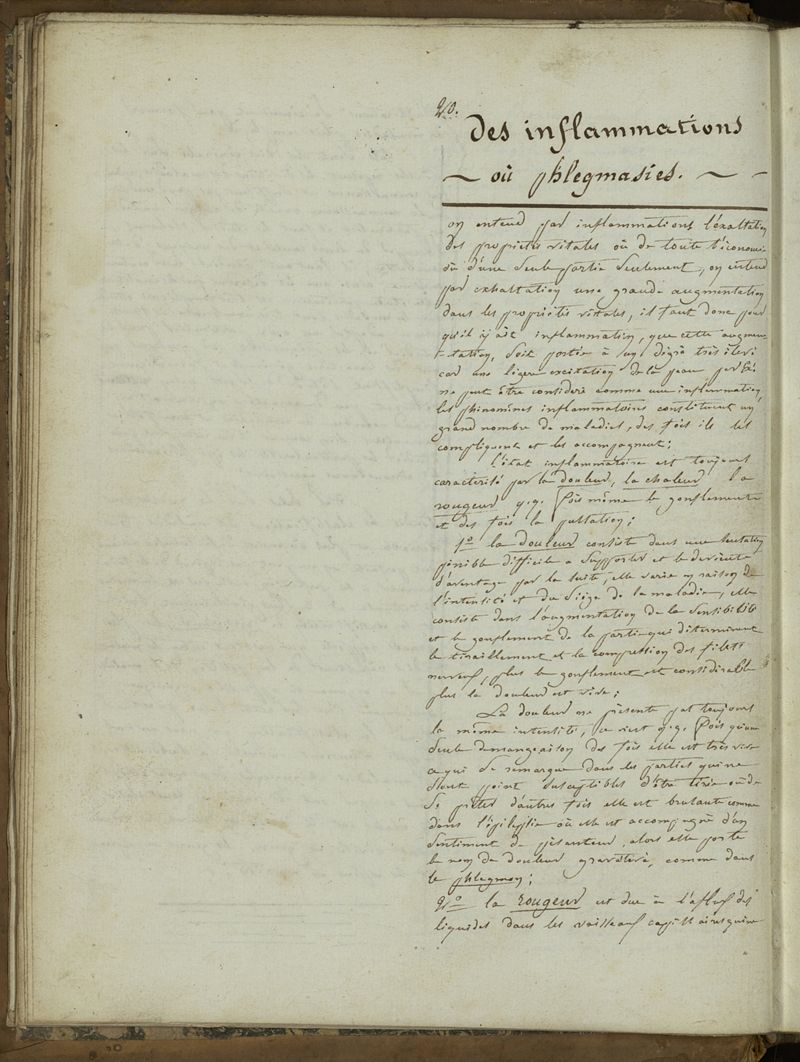 20.
Des inflammations
~ où phlegmasies. ~ ~
on entend par inflammations l'éxaltation
des propriétés vitales où de toute l'économie
où d'une seule partie seulement, on entend
par exhaltation une grande augmentation
dans les propriétés vitales, il faut donc pour
qu'il y ait inflammation, que cette augmen-
-tation, soit portée à un dégré très élevé
car une légere excitation de la peau par Ex.
ne peut être consideré comme une inflammation,
les phénomènes inflammatoires constituent un
grand nombre de maladies, des fois ils les
compliquent et les accompagnent;
L'état inflammatoire est toujours
caractérisé par la douleur, la chaleur, la
rougeur q.q. fois même le gonflement
et des fois la pulsation;
1º la douleur consiste dans une sensation
pénible difficile a supporter et le devient
d'avantage par la suite, elle varie en raison de
l'intensité et du siège de la maladie, elle
consiste dans l'augmentation de la sensibilité
et le gonflement de la partie qui déterminent
le tiraillement et la compression des filets
nerveux, plus le gonflement est considérable
plus la douleur est vive;
La douleur ne présente pas toujours
la même intensité, ce n'est q.q. fois qu'une
seule demangeaison des fois elle est très vive
ce qui se remarque dans les parties qui ne
sont point susceptibles d'être tirée où de
se prêter d'autres fois elle est brulante comme
dans où elle est accompagné d'un
sentiment de pésanteur, alors elle porte
le nom de douleur gravative, comme dans
le phlegmon;
2º la rougeur est due à l'aflux des
liquides dans les vaisseaux capillaires qui ne